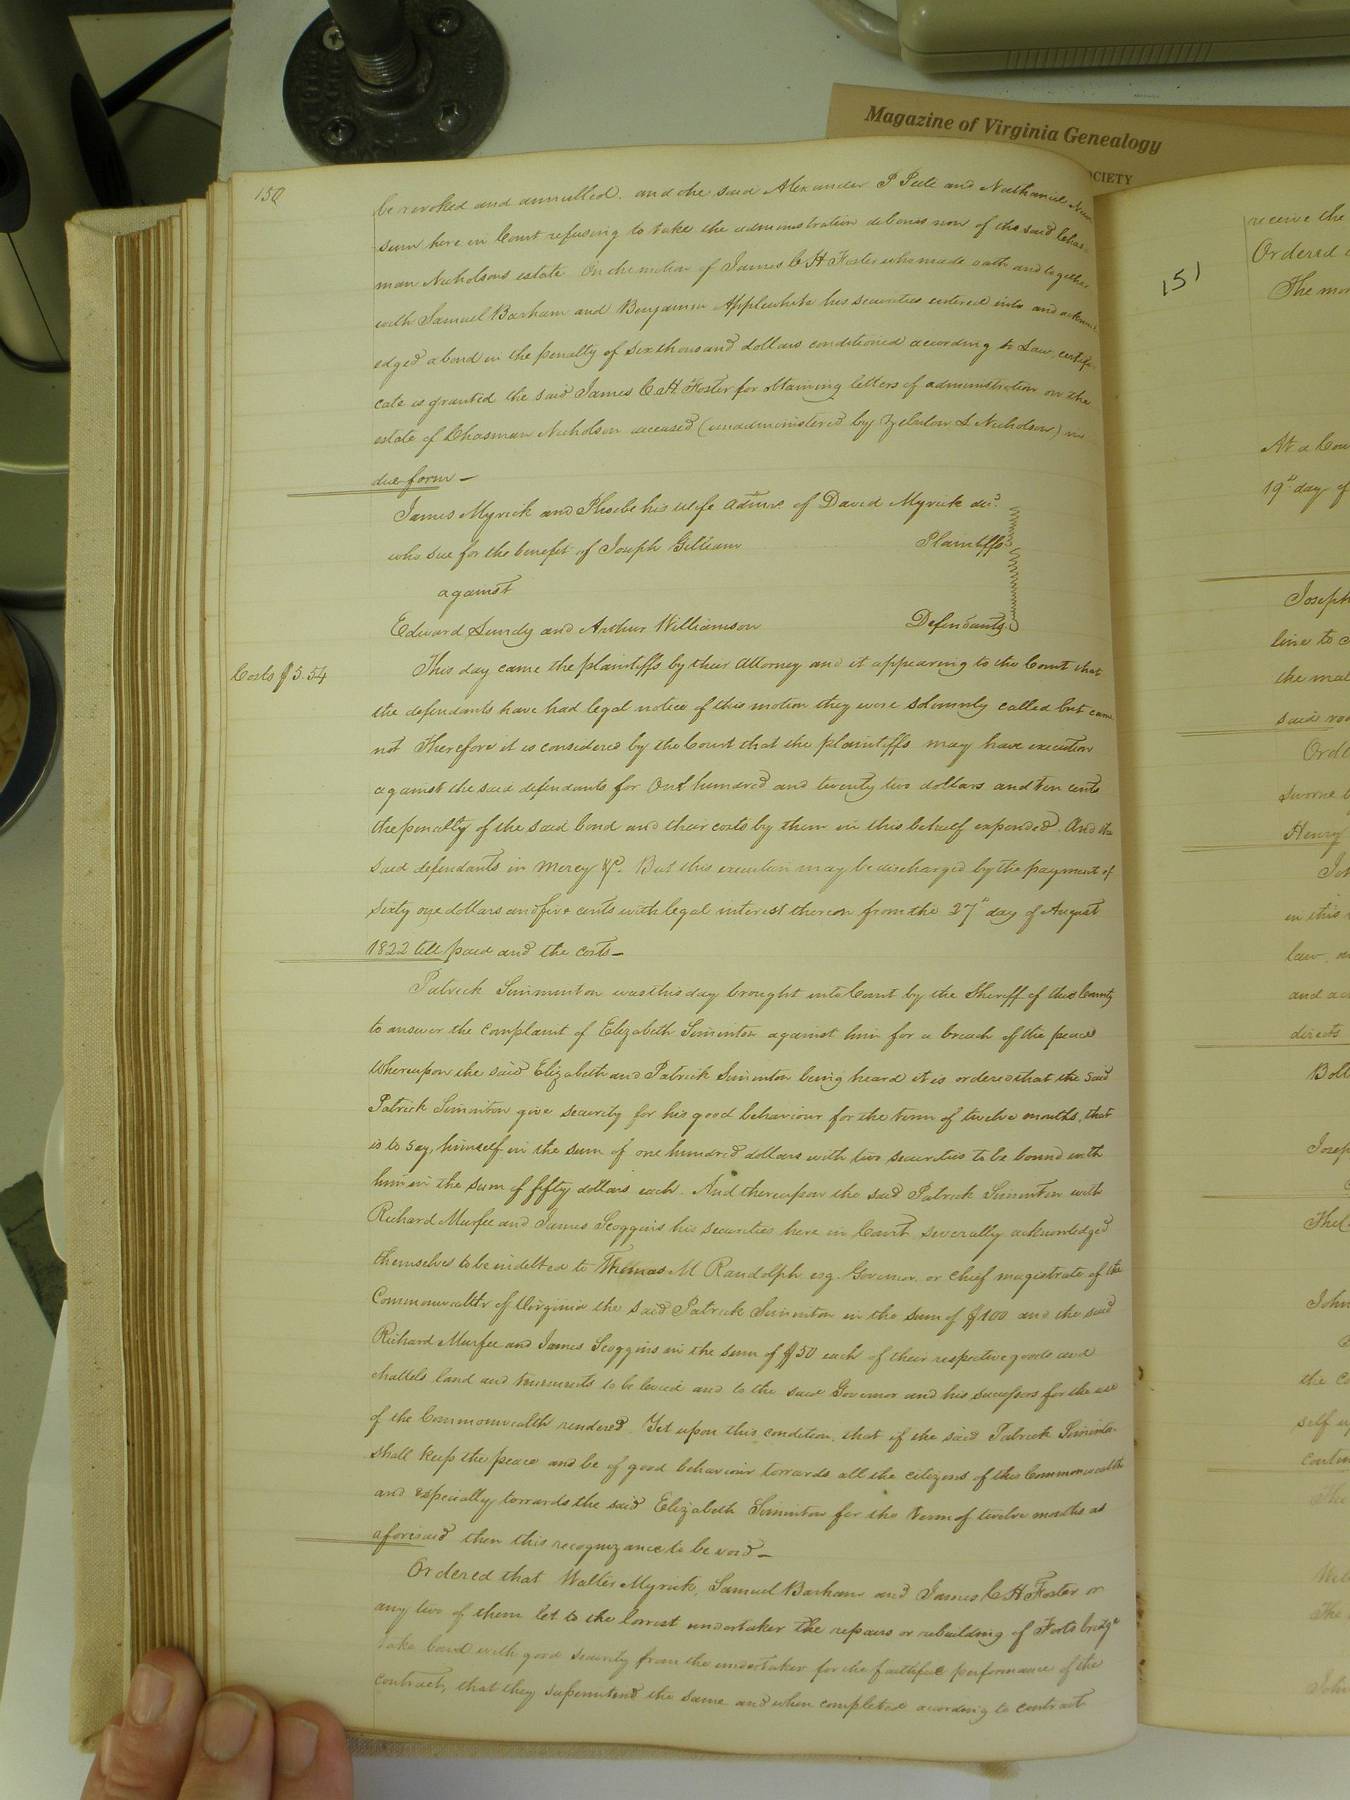 Magazine of Virginia Genealogy
OCIETY
150
be revoked and annulled. and the said Alexander P Peete and Nathaniel New
sum here in Court refusing to take the administration debonis non of the said Chas
man Nicholsons estate On the motion of James C H Foster who made oath and together
with Samuel Barham and Benjamin Applewhite his securities entered into and acknow
edged a bond in the penalty of six thousand dollars conditioned according to Law, certifi
cate is granted the said James C H Foster for obtaining letters of administration on the
estate of Chasman Nicholson deceased (unadministered by L Nicholson) in
due form —
James Myrick and Phoebe his wife admx of David Myrick dec.d
who sue for the benefit of Joseph Gilliam Plaintiffs
against
Edward Lundy and Arthur Williamson Defendants
Costs $5.54
This day came the plaintiffs by their attorney and it appearing to the Court that
the defendants have had legal notice of this motion they were solemnly called but came
not Therefore it is considered by the Court that the plaintiffs may have execution
against the said defendants for One hundred and twenty two dollars and ten cents
the penalty of the said bond and their costs by them in this behalf expended. And the
said defendants in mercy &c. But this execution may be discharged by the payment of
Sixty one dollars and five cents with legal interest thereon from the 27th day of August
1822 till paid and the costs —
Patrick Siminton was this day brought into Court by the Sheriff of this County
to answer the complaint of Elizabeth Siminton against him for a breach of the peace
Whereupon the said Elizabeth and Patrick Siminton being heard it is ordered that the said
Patrick Siminton give security for his good behaviour for the term of twelve months, that
is to say, himself in the sum of one hundred dollars with two securities to be bound with
him in the sum of fifty dollars each. And thereupon the said Patrick Siminton with
Richard Murfee and James Scoggins his securities here in Court severally acknowledged
themselves to be indebted to Thomas M Randolph esq. Governor or chief magistrate of the
Commonwealth of Virginia the said Patrick Siminton in the sum of $100 and the said
Richard Murfee and James Scoggins in the sum of $50 each of their respective goods and
chattels land and tenements to be levied and to the said Governor and his successors for the use
of the Commonwealth rendered. Yet upon this condition, that if the said Patrick Siminton
shall keep the peace and be of good behaviour towards all the citizens of this Commonwealth
and especially towards the said Elizabeth Siminton for the term of twelve months as
aforesaid then this recognizance to be void —
Ordered that Walter Myrick, Samuel Barham and James C H Foster or
any two of them let to the lowest undertaker the repairs or rebuilding of Forts bridge
take bond with good security from the undertaker for the faithful performance of the
contract, that they superintend the same and when completed according to contract
151
receive the
Ordered
The mo
At a Cou
19th day of
Joseph
line to
the
said
Orde
Sworne
Henry
in this
law
and
directs
Bolt
Josep
John
the
self
contin
The
The
John